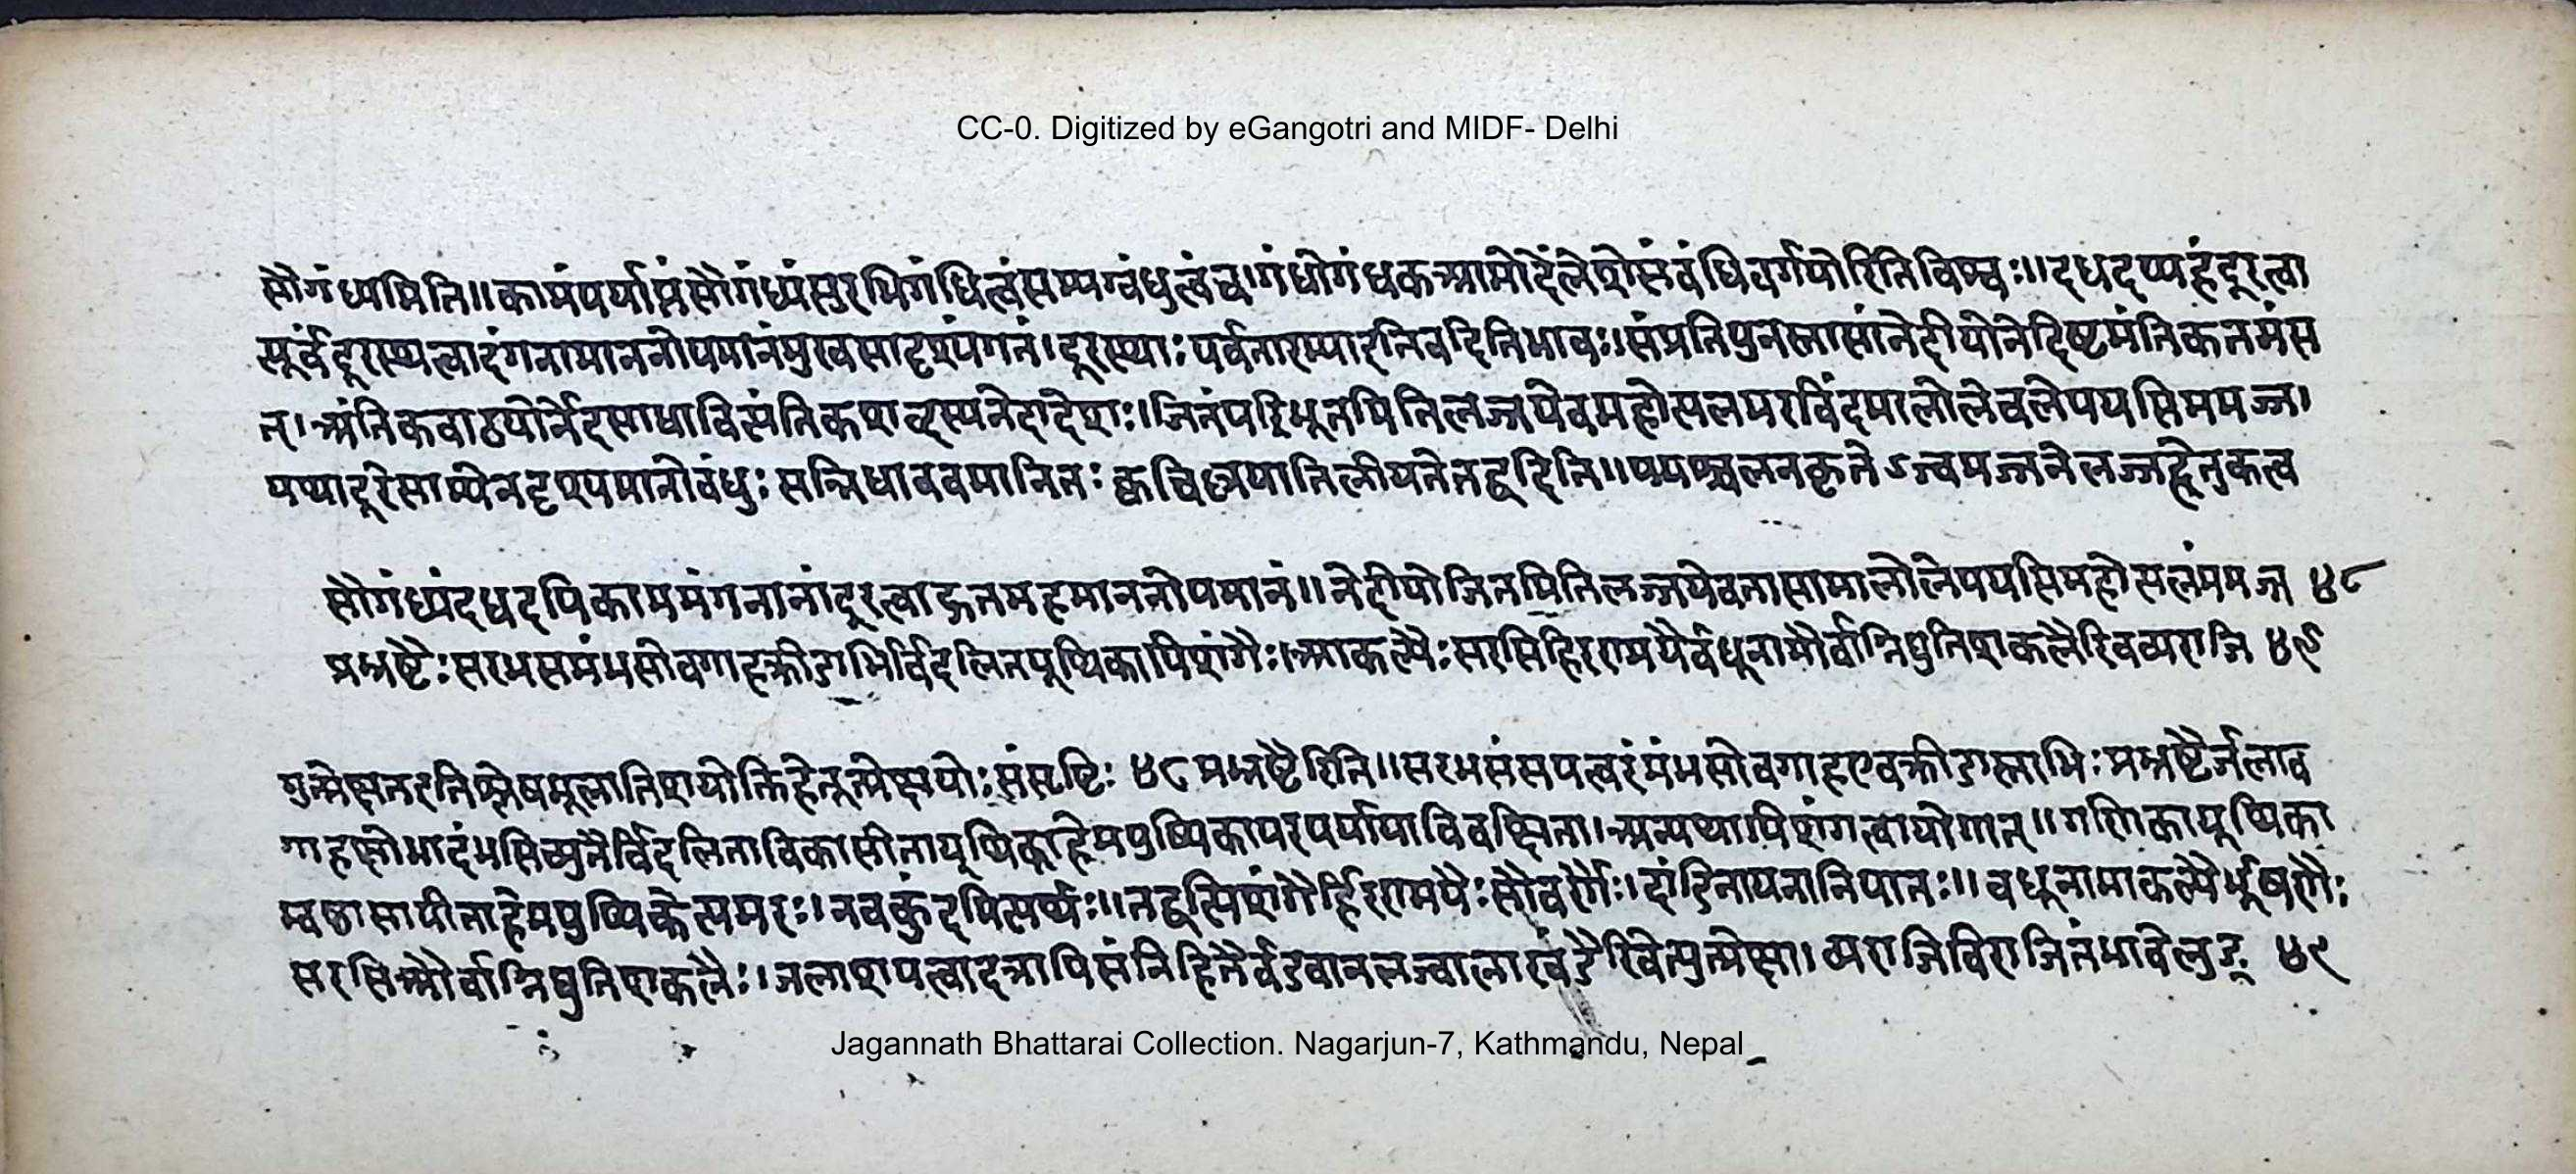 CC-0. Digitized by eGangotri and MIDF- Delhi
सौगंध्यमिति॥कामंपर्याप्तंसौगंध्यंसुरभिगंधित्वंसम्यग्वंधुत्वंच।गंधोगंधकआमोदेलेशेसंवंधिगर्वयोरितिविश्वः॥दधदप्यहंदूरत्वा
त्पूर्वंदूरस्थत्वादंगनामाननोपमानंमुखसादृश्यंगतं।दूरस्थाःपर्वतारम्याइतिवदितिभावः॥संप्रतिपुनस्तासांनेदीयोनेदिष्टमंतिकतमंस
त्।अंतिकवाठयोर्नेदसाधावित्यंतिकशब्दस्यनेदादेशः।जितंपरिभूतमितिलज्जयेवमहोत्पलमरविंदमालोलेचलेपयसिममज्ज।
यथादूरेसाम्येनदृश्यमानोवंधुःसन्निधाववमानितःक्वचित्त्रपयानिलीयतेतद्वदिति॥पयश्चलनकृतेऽव्जमज्जनेलज्जाहेतुकत्व
सौगंध्यंदधदपिकाममंगनानांदूरत्वाद्गतमहमाननोपमानं॥नेदीयोजितमितिलज्जयेवतासामालोलेपयसिमहोत्पलंममज्ज ४८
प्रभ्रष्टैःसरभसमंभसोवगाहक्रीडाभिर्विदलितयूथिकापिशंगैः।आकल्पैःसरसिहिरण्मयैर्वधूनामौर्वाग्निद्युतिशकलैरिवव्यराजि ४९
मुत्प्रेक्षतइतिश्लेषमूलातिशयोक्तिहेतूत्प्रेक्षयोःसंसृष्टिः ४८ प्रभ्रष्टैरिति॥सरभसंसपत्वरंमंभसोवगाहएवक्रीडास्ताभिःप्रभ्रष्टैर्जलाव
गाहक्षोभादंभसिच्युतैर्विदलिताविकासीतायूथिकाहेमपुष्पिकापरपर्यायाविवक्षिता।अन्यथापिशंगत्वायोगात्॥गणिकायूथिका
म्वष्ठासापीताहेमपुष्पिकेत्यमरः।नवकुंदमित्यर्थः॥तद्वत्पिशंगैर्हिरण्मयैःसौवर्णैः।दांडिनायनानिपातः॥वधूनामाकल्पैर्भूषणैः
सरसिऔर्वाग्निद्युतिशकलैः।जलाशयत्वादत्रापिसंनिहितैर्वडवानलज्वालाखंडैरिवेत्युत्प्रेक्षा।व्यराजिविराजितंभावेलुङ् ४९
Jagannath Bhattarai Collection. Nagarjun-7, Kathmandu, Nepal